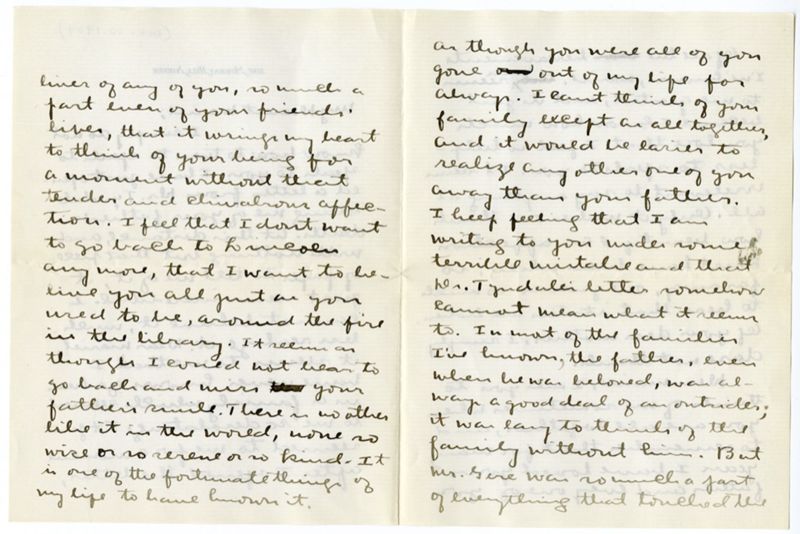 lives of any of you, so much a
part even of your friends'
lives, that it wrings my heart
to think of your being for
a moment without that
tender and chivalrous affec-
tion. I feel that I don't want
to go back to Lincoln
any more, that I want to be-
lieve you all just as you
used to be, around the fire
in the library. It seems as
though I could not bear to
go back and miss your
father's smile. There is no other
like it in the world, none so
wise or so serene or so kind. It
is one of the fortunate things of
my life to have known it.
as though you were all of you
gone out of my life for
always. I can't think of your
family except as all together,
and it would be easier to
realize any other one of you
away than your father.
I keep feeling that I am
writing to you under some
terrible mistake and that
Dr. Tyndale's letter somehow
cannot mean what it seems
to. In most of the families
I've known, the father, even
when he was beloved, was al-
ways a good deal of an outsider;
it was easy to think of the
family without him. But
Mr. Gere was so much a part
of everything that touched the